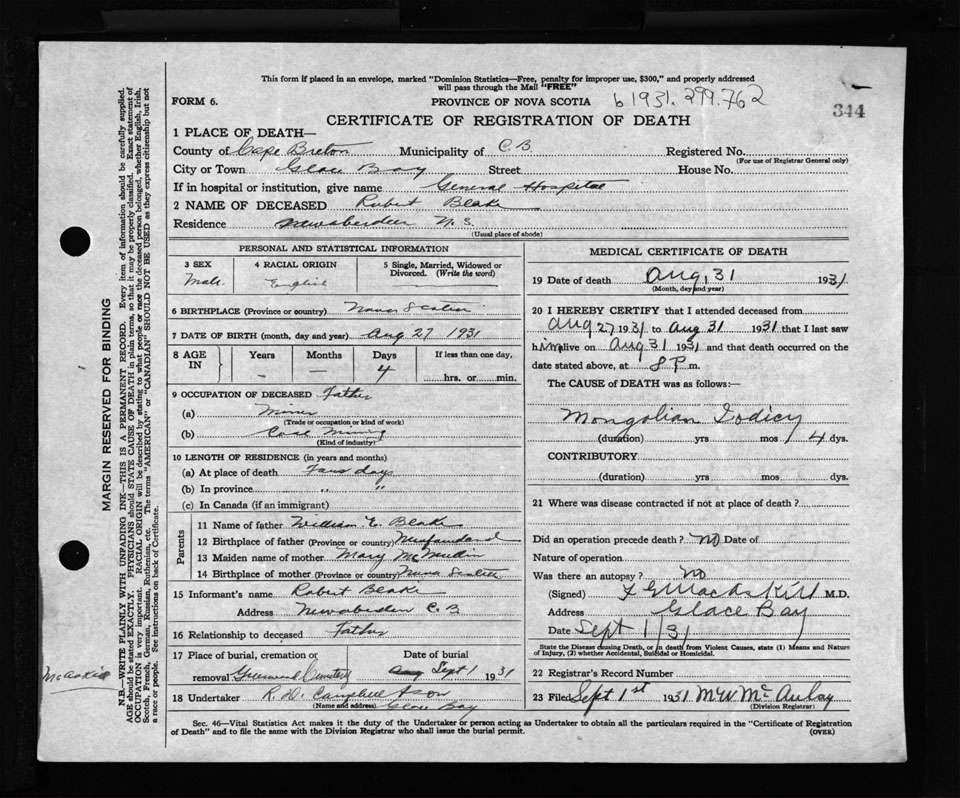 This form if placed in an envelope, marked "Dominion Statistics—Free, penalty for improper use, $300," and properly addressed
will pass through the Mail "FREE"
FORM 6. PROVINCE OF NOVA SCOTIA b 1931. 299.762
344
CERTIFICATE OF REGISTRATION OF DEATH
1 PLACE OF DEATH—
County of Cape Breton Municipality of C.B. Registered No.
(For use of Registrar General only)
City or Town Glace Bay Street House No.
If in hospital or institution, give name General Hospital
2 NAME OF DECEASED Robert Blake
Residence Newaberdeen N.S.
(Usual place of abode)
PERSONAL AND STATISTICAL INFORMATION
3 SEX 4 RACIAL ORIGIN 5 Single, Married, Widowed or Divorced. (Write the word)
Male English
6 BIRTHPLACE (Province or country) Nova Scotia
7 DATE OF BIRTH (month, day and year) Aug 27 1931
8 AGE IN Years Months Days If less than one day,
- — 4 hrs. or min.
9 OCCUPATION OF DECEASED Father
(a) Miner
(Trade or occupation or kind of work)
(b) Coal Mining
(Kind of industry)
10 LENGTH OF RESIDENCE (in years and months)
(a) At place of death Four days
(b) In province " "
(c) In Canada (if an immigrant)
Parents
11 Name of father William E. Blake
12 Birthplace of father (Province or country)
13 Maiden name of mother Mary
14 Birthplace of mother (Province or country) Nova Scotia
15 Informant's name Robert Blake
Address Newaberdeen C.B.
16 Relationship to deceased Father
17 Place of burial, cremation or Date of burial
removal Greenwood Cemetery Aug Sept 1 1931
18 Undertaker R. D. Campbell & Son
(Name and address) Glace Bay
MEDICAL CERTIFICATE OF DEATH
19 Date of death Aug, 31 1931
(Month, day and year)
20 I HEREBY CERTIFY that I attended deceased from
Aug 27 1931 to Aug 31 1931 that I last saw
him alive on Aug 31 1931 and that death occurred on the
date stated above, at 8 P. m.
The CAUSE of DEATH was as follows:
Mongolian Idiocy
(duration) yrs mos 4 dys.
CONTRIBUTORY
(duration) yrs mos dys
21 Where was disease contracted if not at place of death?
Did an operation precede death? no Date of
Nature of operation
Was there an autopsy? no
(Signed) M.D.
Address Glace Bay
Date Sept 1/31
State the Disease causing Death, or in death from Violent Causes, state (1) Means and Nature
of Injury, (2) whether Accidental, Suicidal or Homicidal.
22 Registrar's Record Number
23 Filed Sept 1st 1931 M W McAulay
(Division Registrar)
Sec. 46—Vital Statistics Act makes it the duty of the Undertaker or person acting as Undertaker to obtain all the particulars required in the "Certificate of Registration
of Death" and to file the same with the Division Registrar who shall issue the burial permit. (OVER)
MARGIN RESERVED FOR BINDING
N.B.—WRITE PLAINLY WITH UNFADING INK—THIS IS A PERMANENT RECORD. Every item of information should be carefully supplied.
AGE should be stated EXACTLY. PHYSICIANS should STATE CAUSE OF DEATH in plain terms, so that it may be properly classified. Exact statement of
OCCUPATION is very important. RACIAL ORIGIN will be described by stating to what people or race the deceased person belonged, whether English, Irish,
Scotch, French, German, Russian, Ruthenian, etc. The terms "AMERICAN" or "CANADIAN" SHOULD NOT BE USED as they express citizenship but not
a race or people. See instructions on back of Certificate.